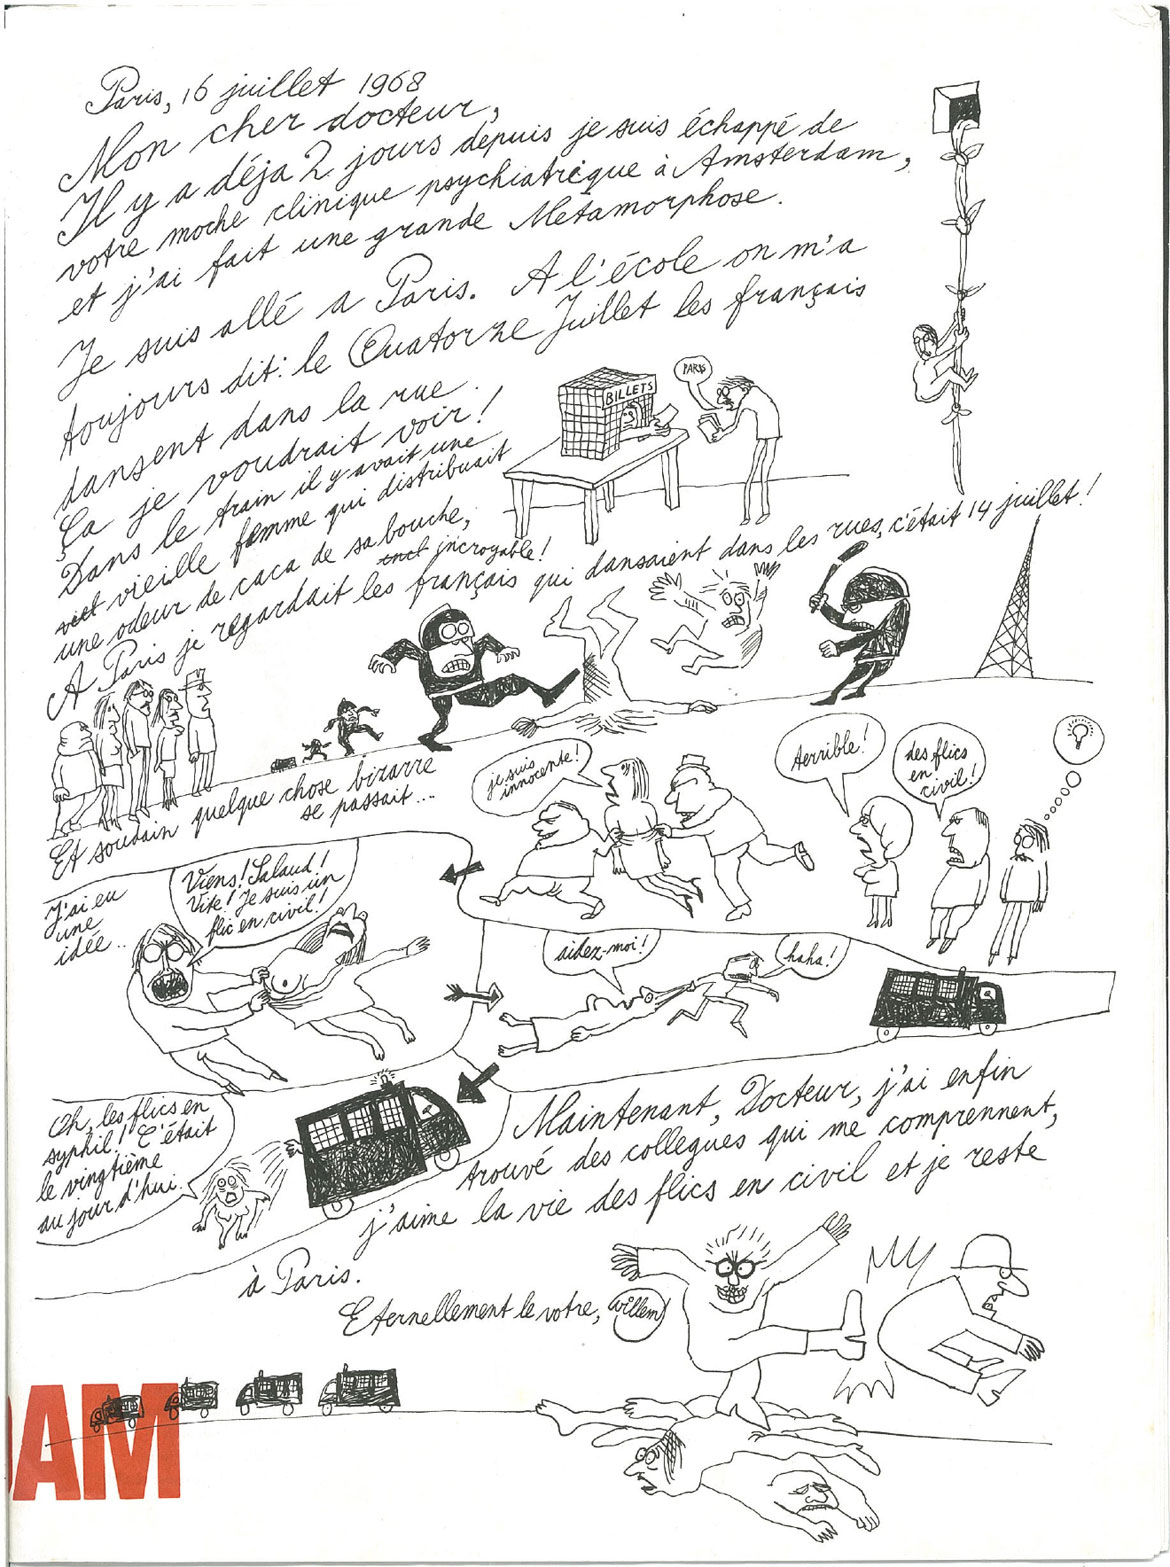 Paris, 16 juillet 1968
Mon cher docteur,
Il y a déja 2 jours depuis je suis échappé de
votre moche clinique psychiatrique à Amsterdam,
et j'ai fait une grande Métamorphose.
Je suis allé a Paris. A l'école on m'a
toujours dit: le Quatorze Juillet les français
dansent dans la rue.
Ça je voudrait voir!
Dans le train il y avait une
vieille femme qui distribuait
une odeur de caca de sa bouche,
incroyable!
PARIS
BILLETS
A Paris je regardait les français qui dansaient dans les rues, c'était 14 juillet!
Et soudain quelque chose bizarre
se passait...
je suis
innocente!
terrible!
des flics
en
civil!
J'ai eu
une
idée..
Viens! Salaud!
Vite! Je suis un
flic en civil!
aidez-moi!
haha!
Oh, les flics en
syphil! C'était
le vingtième
au jour d'hui.
Maintenant, Docteur, j'ai enfin
trouvé des collegues qui me comprennent,
j'aime la vie des flics en civil et je reste
à Paris.
Eternellement le votre, Willem
DAM